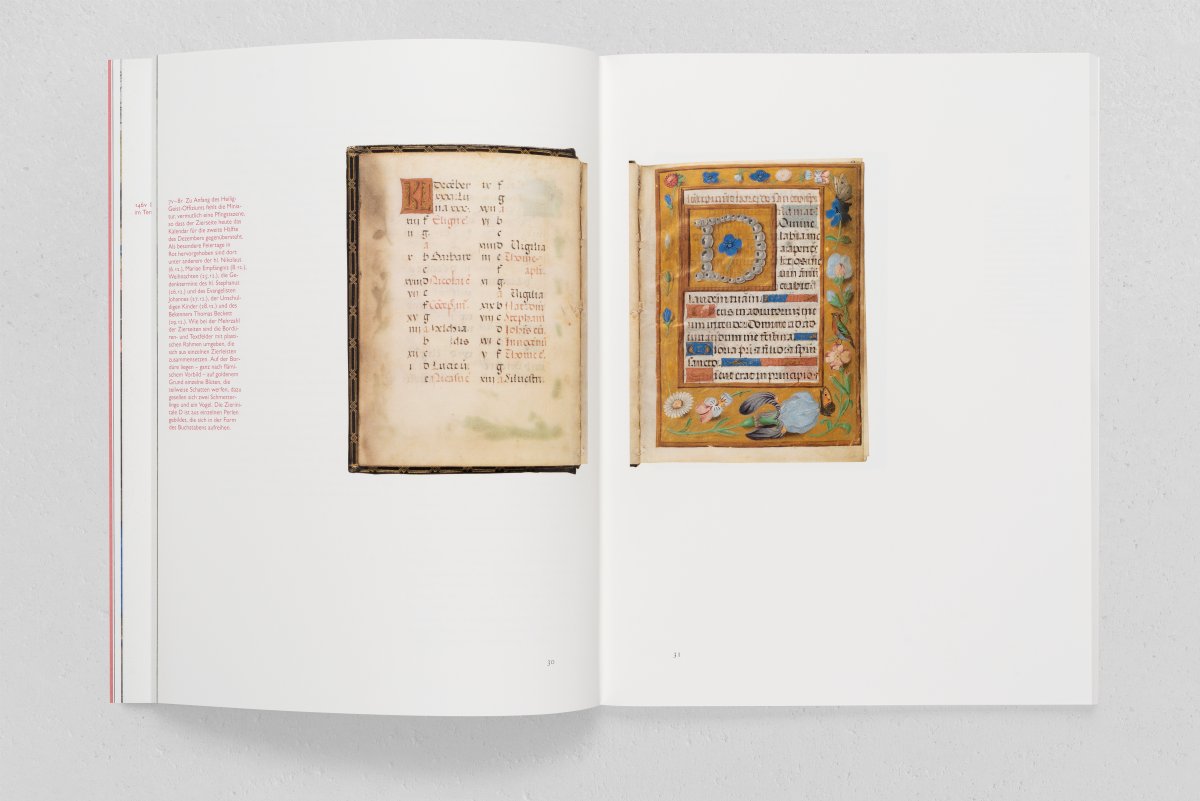 146v
im Ter
7v–8r Zu Anfang des Heilig-
Geist-Offiziums fehlt die Minia-
tur, vermutlich eine Pfingstszene,
so dass der Zierseite heute das
Kalender für die zweite Hälfte
des Dezembers gegenübersteht.
Als besondere Feiertage in
Rot hervorgehoben sind dort
unter anderem der hl. Nikolaus
(6.12.), Mariae Empfängnis (8.12.),
Weihnachten (25.12.), die Ge-
denktermine des hl. Stephanus
(26.12.) und des Evangelisten
Johannes (27.12.), der Unschul-
digen Kinder (28.12.) und des
Bekenners Thomas Beckett
(29.12.). Wie bei der Mehrzahl
der Zierseiten sind die Bordü-
ren- und Textfelder mit plasti-
schen Rahmen umgeben, die
sich aus einzelnen Zierleisten
zusammensetzen. Auf der Bor-
düre liegen – ganz nach flämi-
schem Vorbild – auf goldenem
Grund einzelne Blüten, die
teilweise Schatten werfen, dazu
gesellen sich zwei Schmetter-
linge und ein Vogel. Die Zierini-
tiale D ist aus einzelnen Perlen
gebildet, die sich in der Form
des Buchstabens aufreihen.
KL
iv f
g
xvii a
vi b
c
xiiii d Vigilia
iii e Thome
f apli.
xi g
a Vigilia
xix b
xvi e
v f Thome
g
xiii a Silvestri
iiii f
ii g
a
x b Barbare
c
xviii d Nicolai
vii e
f
xv g
iiii a
b
xii c
i d Lucie
e Nicasii
D
Domine
labia me
a aperies
et os me
um
tuam
um intende Domine ad ad
iuvandum me festina
loria pri et filio et spiri
sancto
icut erat in principio
30
31